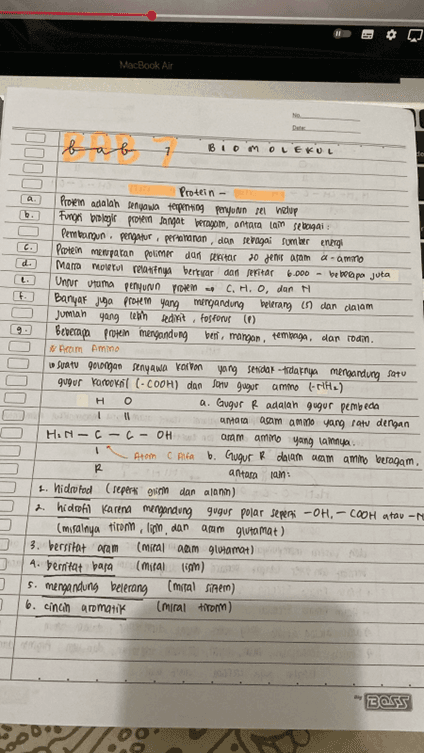 MacBook Air
No.
Date:
BAB 7
bab 7 BIOMOLEKUL
Protein -
a. Protein adalah senyawa terpenting penyusun sel hidup
b. Fungsi biologis protein sangat beragam, antara lain sebagai:
Pembangun, pengatur, pertahanan, dan sebagai sumber energi
c. Protein merupakan polimer dari sekitar 20 jenis asam α-amino
d. Massa molekul relatifnya berkisar dari sekitar 6.000 - beberapa juta
e. Unsur utama penyusun protein ⇒ C, H, O, dan N
f. Banyak juga protein yang mengandung belerang (S) dan dalam
jumlah yang lebih sedikit, fosforus (P)
g. Beberapa protein mengandung besi, mangan, tembaga, dan iodin.
Asam Amino
suatu golongan senyawa karbon yang setidak-tidaknya mengandung satu
gugus karboksil (-COOH) dan satu gugus amino (-NH₂)
H O a. Gugus R adalah gugus pembeda
antara asam amino yang satu dengan
H₂N - C - C - OH asam amino yang lainnya.
Atom C Alfa b. Gugus R dalam asam amino beragam,
R antara lain:
1. hidrofob (seperti glisin dan alanin)
2. hidrofil karena mengandung gugus polar seperti -OH, -COOH atau -N
(misalnya tirosin, lisin, dan asam glutamat)
3. bersifat asam (misal asam glutamat)
4. bersifat basa (misal lisin)
5. mengandung belerang (misal sistein)
6. cincin aromatik (misal tirosin)
by BOSS